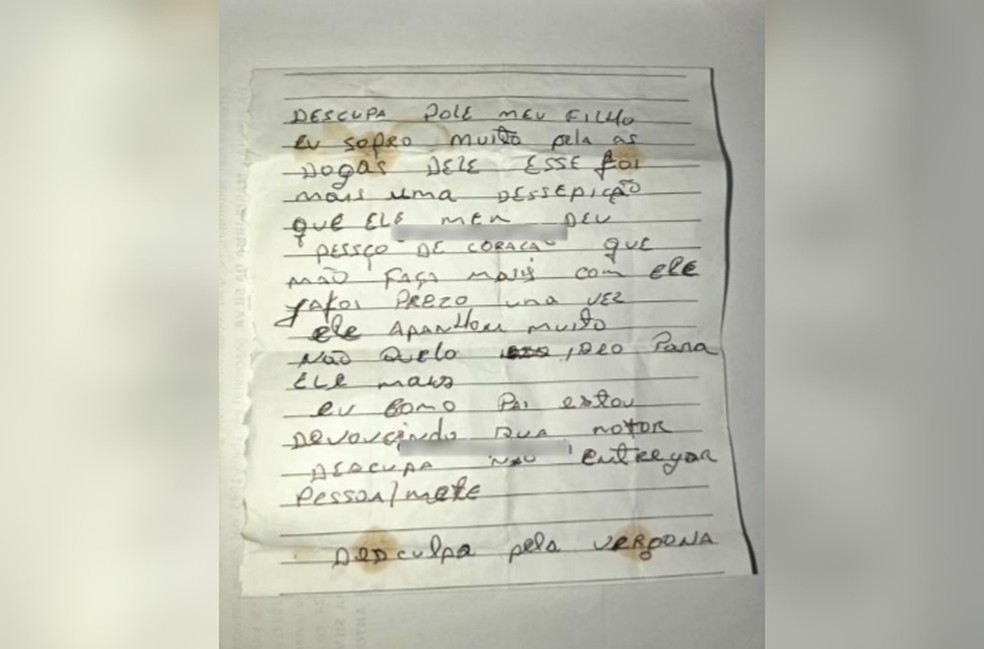 DESCUPA POLE MEU FILHO
EU SOFRO MUITO pela as
DOGAS DELE ESSE FOI
MAIS uma DESSEPIÇÃO
QUE ELE MEM DEU
PESSÇO DE CORAÇAO QUE
NÃO FAÇA MAIS com ELE
JAFOI PREZO una VEZ
ele APANHOU MUITO
NÃO QUELO ,DEO PARA
ELE mais
EU como PAI estou
DEVOVCINDO SUA MOTOR
DESCUPA NÃO entregar
PESSOA/mete
DESCULPA pela VERGONA